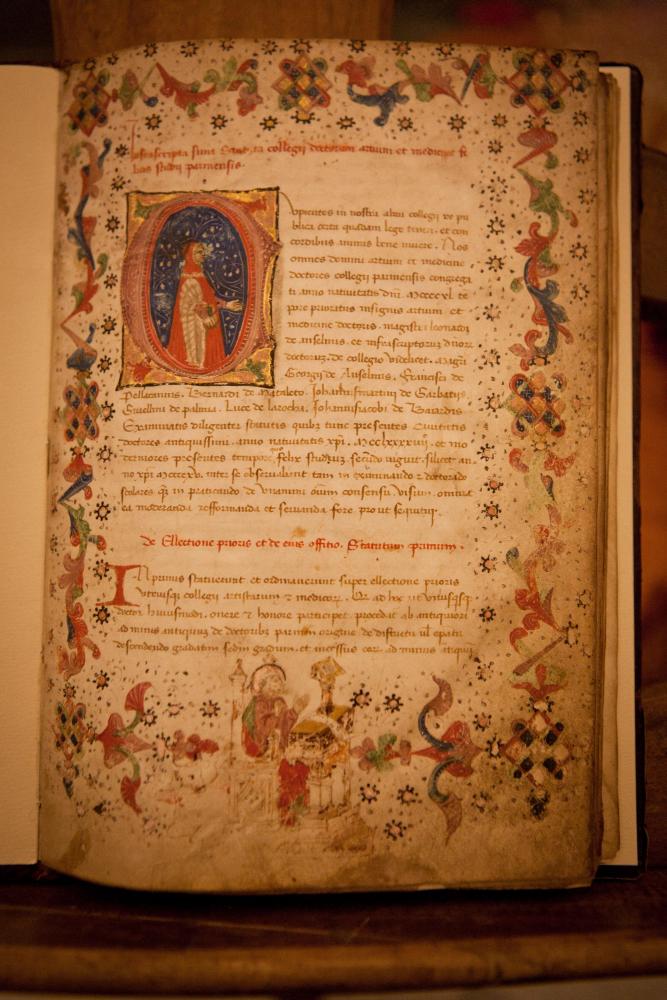 Infrascripta sunt Statuta collegij doctorum artium et medicine fe
licis studij parmensis.
Cupientes in nostra almi collegij re pu
blica certa quadam lege teneri et con
cordibus animis bene vivere. Nos
omnes domini artium et medicine
doctores collegij parmensis congrega
ti anno nativitatis dni. Mccccxl te
pore prioratus insignis artium et
medicine doctoris magistri leonardi
de anselmis et infrascriptorum dnorum
doctorum de collegio videlicet. Magri
Georgij de Anselmis. Francisci de
Pellacanis. Bernardi de Mataleto. Johannis martini de Garbatijs.
Guielmi de palmia. Luce de larocha. Johannis iacobi de Baiardis
Examinatis diligenter statutis quibus tunc presentes Civitatis
doctores antiquissimi anno nativitatis xpi. et mo
derniores presentes tempore felix studium secundo viguit silicet an
no xpi inter se observabant tam in examinando et doctorando
scolares quam in praticando de unanimi omnium consensu
ea moderanda refformanda et servanda fore prout sequitur.
De Ellectione prioris et de eius offitio. Statutum primum.
In primis statuerunt et ordinaverunt super ellectione prioris
utriusque collegij artistarum et medicorum. et hoc ut unusquisque
doctor huiusmodi onere et honore particeps procedat ab antiquiori
ad minus antiquum de doctoribus parmam origine de districtu vel epatu
descendendo gradatim sedm gradum et incessus eorum ad minus antiqui